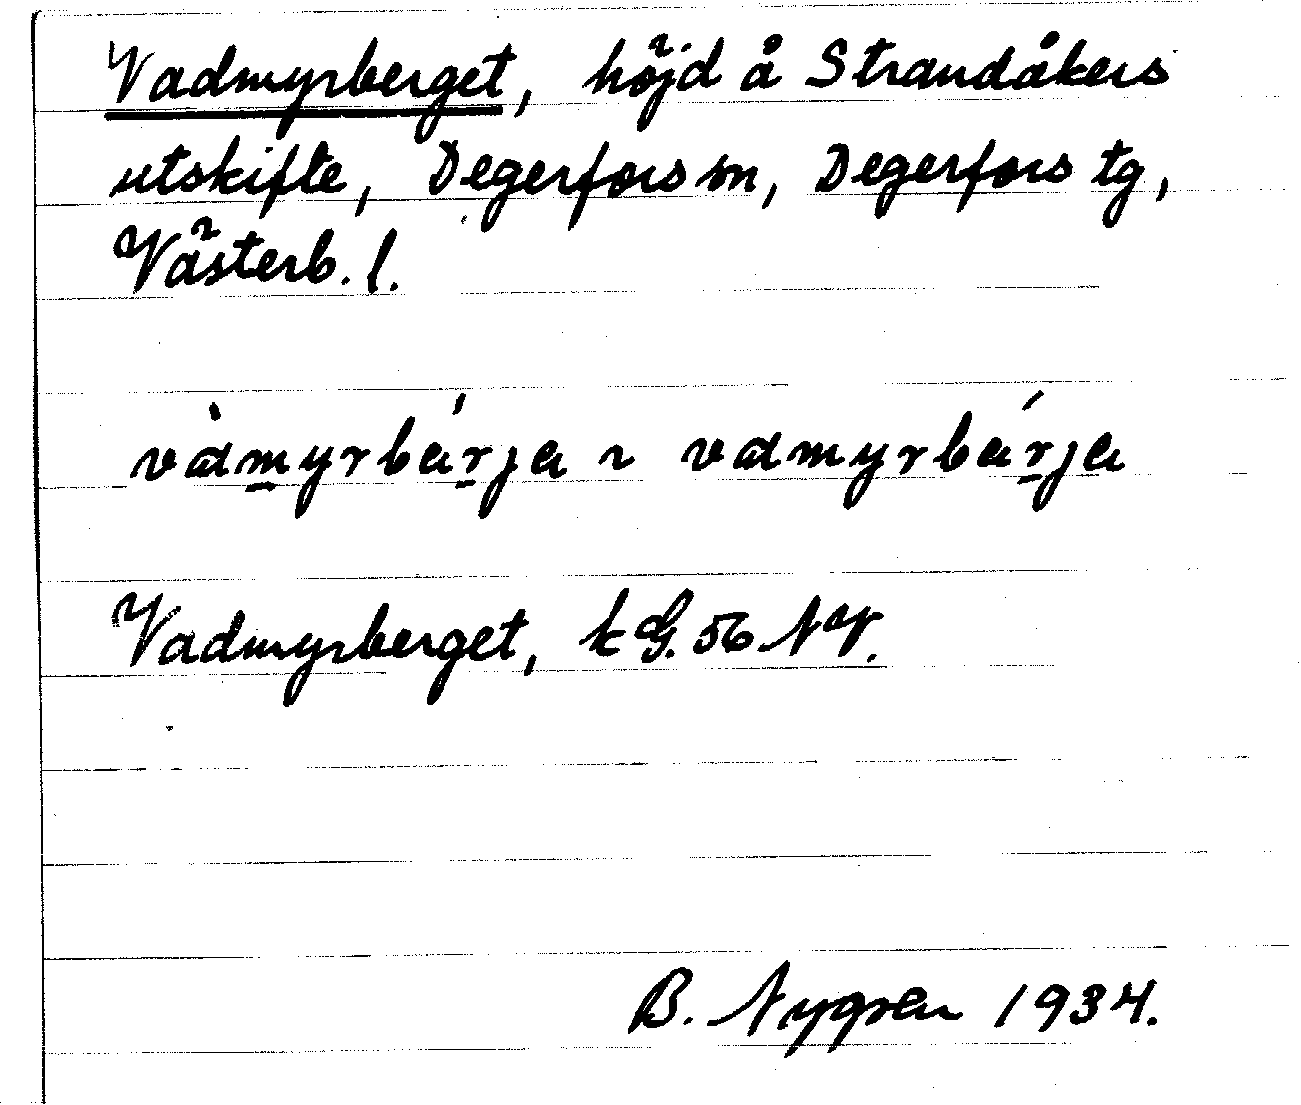 Vadmyrberget, höjd å Strandåkers
utskifte, Degerfors sn, Degerfors tg,
Västerb. l.
vàmyrbárja ~ vamyrbárja
Vadmyrberget, k G. 56 NV.
B. Nygren 1934.